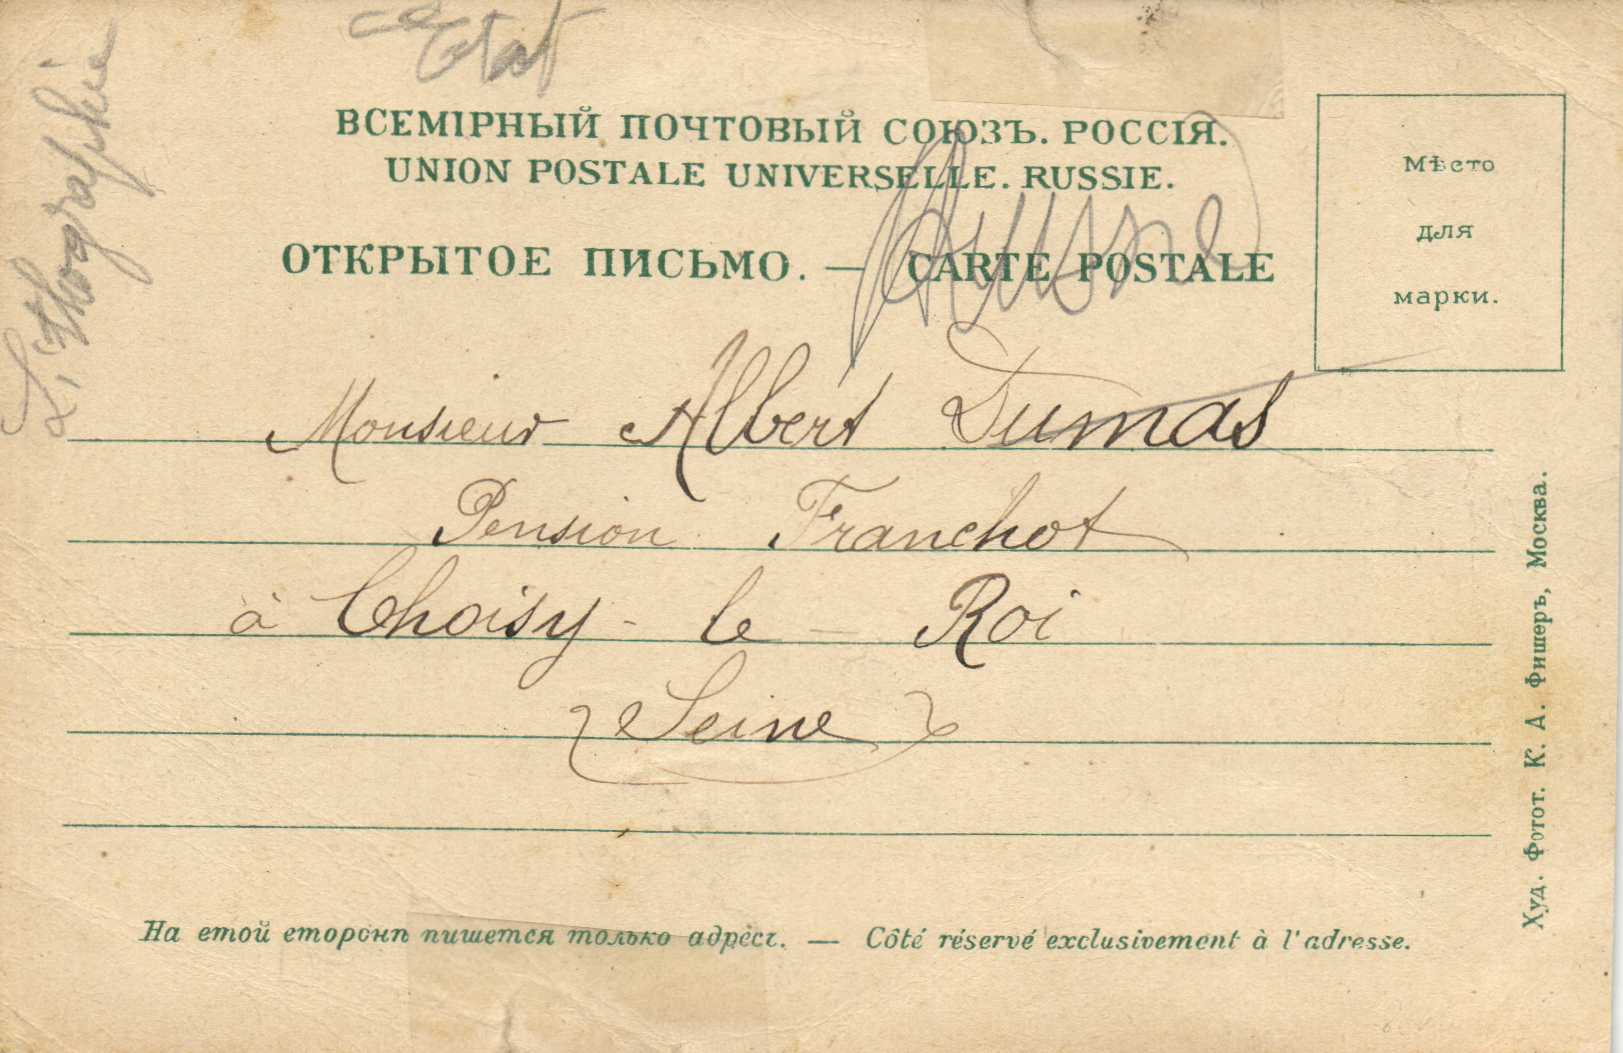 ce
Etat
Lithographie
ВСЕМІРНЫЙ ПОЧТОВЫЙ СОЮЗЪ. РОССІЯ.
UNION POSTALE UNIVERSELLE. RUSSIE.
ОТКРЫТОЕ ПИСЬМО. — CARTE POSTALE
Мѣсто
для
марки.
Monsieur Albert Dumas
Pension Franchot
à Choisy - le - Roi
Seine
Худ. Фотот. К. А. Фишеръ, Москва.
На етой еторонѣ пишется только адресъ. — Côté réservé exclusivement à l'adresse.